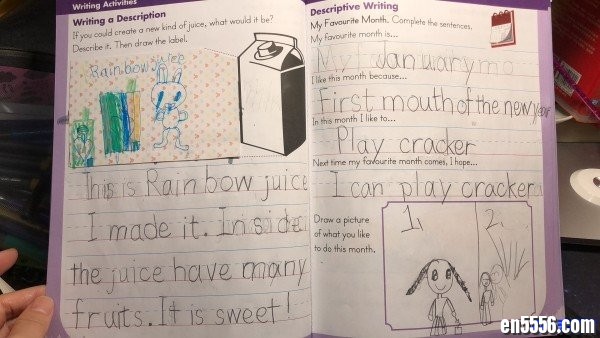 Writing Activities
Writing a Description
If you could create a new kind of juice, what would it be?
Describe it. Then draw the label.
Rainbow juice
This is Rainbow juice
I made it. Inside
the juice have many
fruits. It is sweet!
Descriptive Writing
My Favourite Month. Complete the sentences.
My favourite month is...
My January mo
I like this month because...
First mouth of the new year
In this month I like to...
Play cracker
Next time my favourite month comes, I hope...
I can play cracker
Draw a picture
of what you like
to do this month.
1.
2.
en5556.com